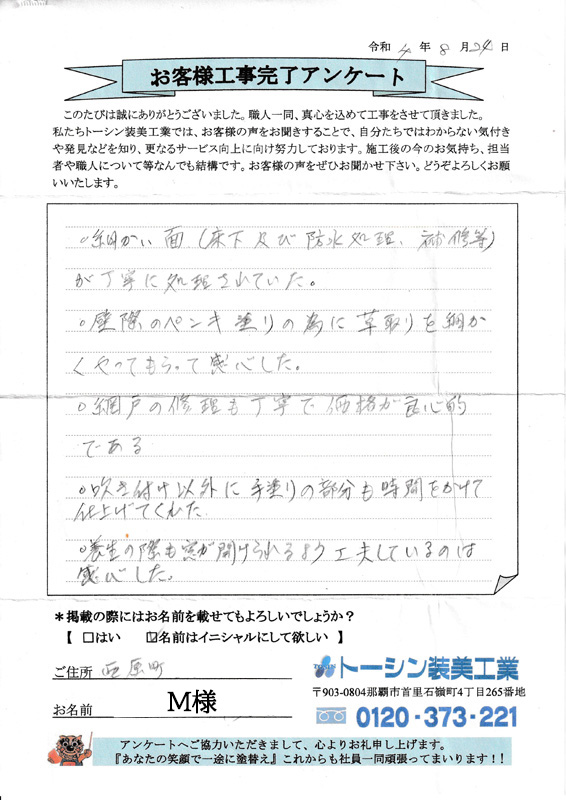 令和 4 年 8 月 24 日
お客様工事完了アンケート
このたびは誠にありがとうございました。職人一同、真心を込めて工事をさせて頂きました。
私たちトーシン装美工業では、お客様の声をお聞きすることで、自分たちではわからない気付き
や発見などを知り、更なるサービス向上に向け努力しております。施工後の今のお気持ち、担当
者や職人について等なんでも結構です。お客様の声をぜひお聞かせ下さい。どうぞよろしくお願
いいたします。
○細かい面(床下及び防水処理、補修等)
が丁寧に処理されていた。
○壁際のペンキ塗りの為に草取りを細か
くやってもらって感心した。
○網戸の修理も丁寧で価格が良心的
である
○吹き付け以外に手塗りの部分も時間をかけて
仕上げてくれた
○養生の際も窓が開けられるよう工夫しているのは
感心した。
*掲載の際にはお名前を載せてもよろしいでしょうか?
【 □はい ☑名前はイニシャルにして欲しい 】
ご住所 西原町
お名前 M様
トーシン装美工業
〒903-0804那覇市首里石嶺町4丁目265番地
0120-373-221
アンケートへご協力いただきまして、心よりお礼申し上げます。
『あなたの笑顔で一途に塗替え』これからも社員一同頑張ってまいります!!